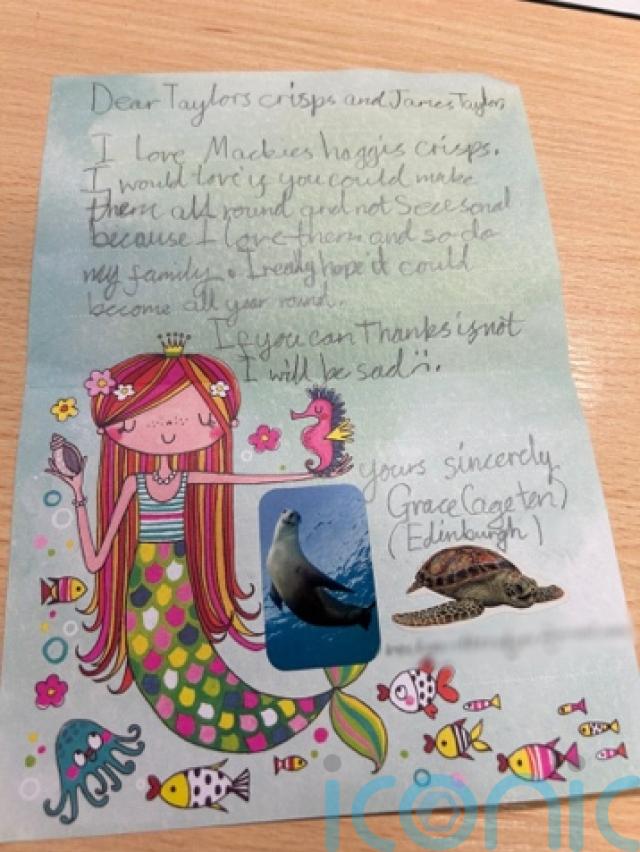 Dear Taylors crisps and James Taylor,
I love Mackies haggis crisps.
I would love if you could make
them all round and not Seeesonal
because I love them and so do
my family. I really hope it could
become all year round.
If you can Thanks if not
I will be sad :(.
yours sincerely
Grace (age ten)
(Edinburgh)
iconic